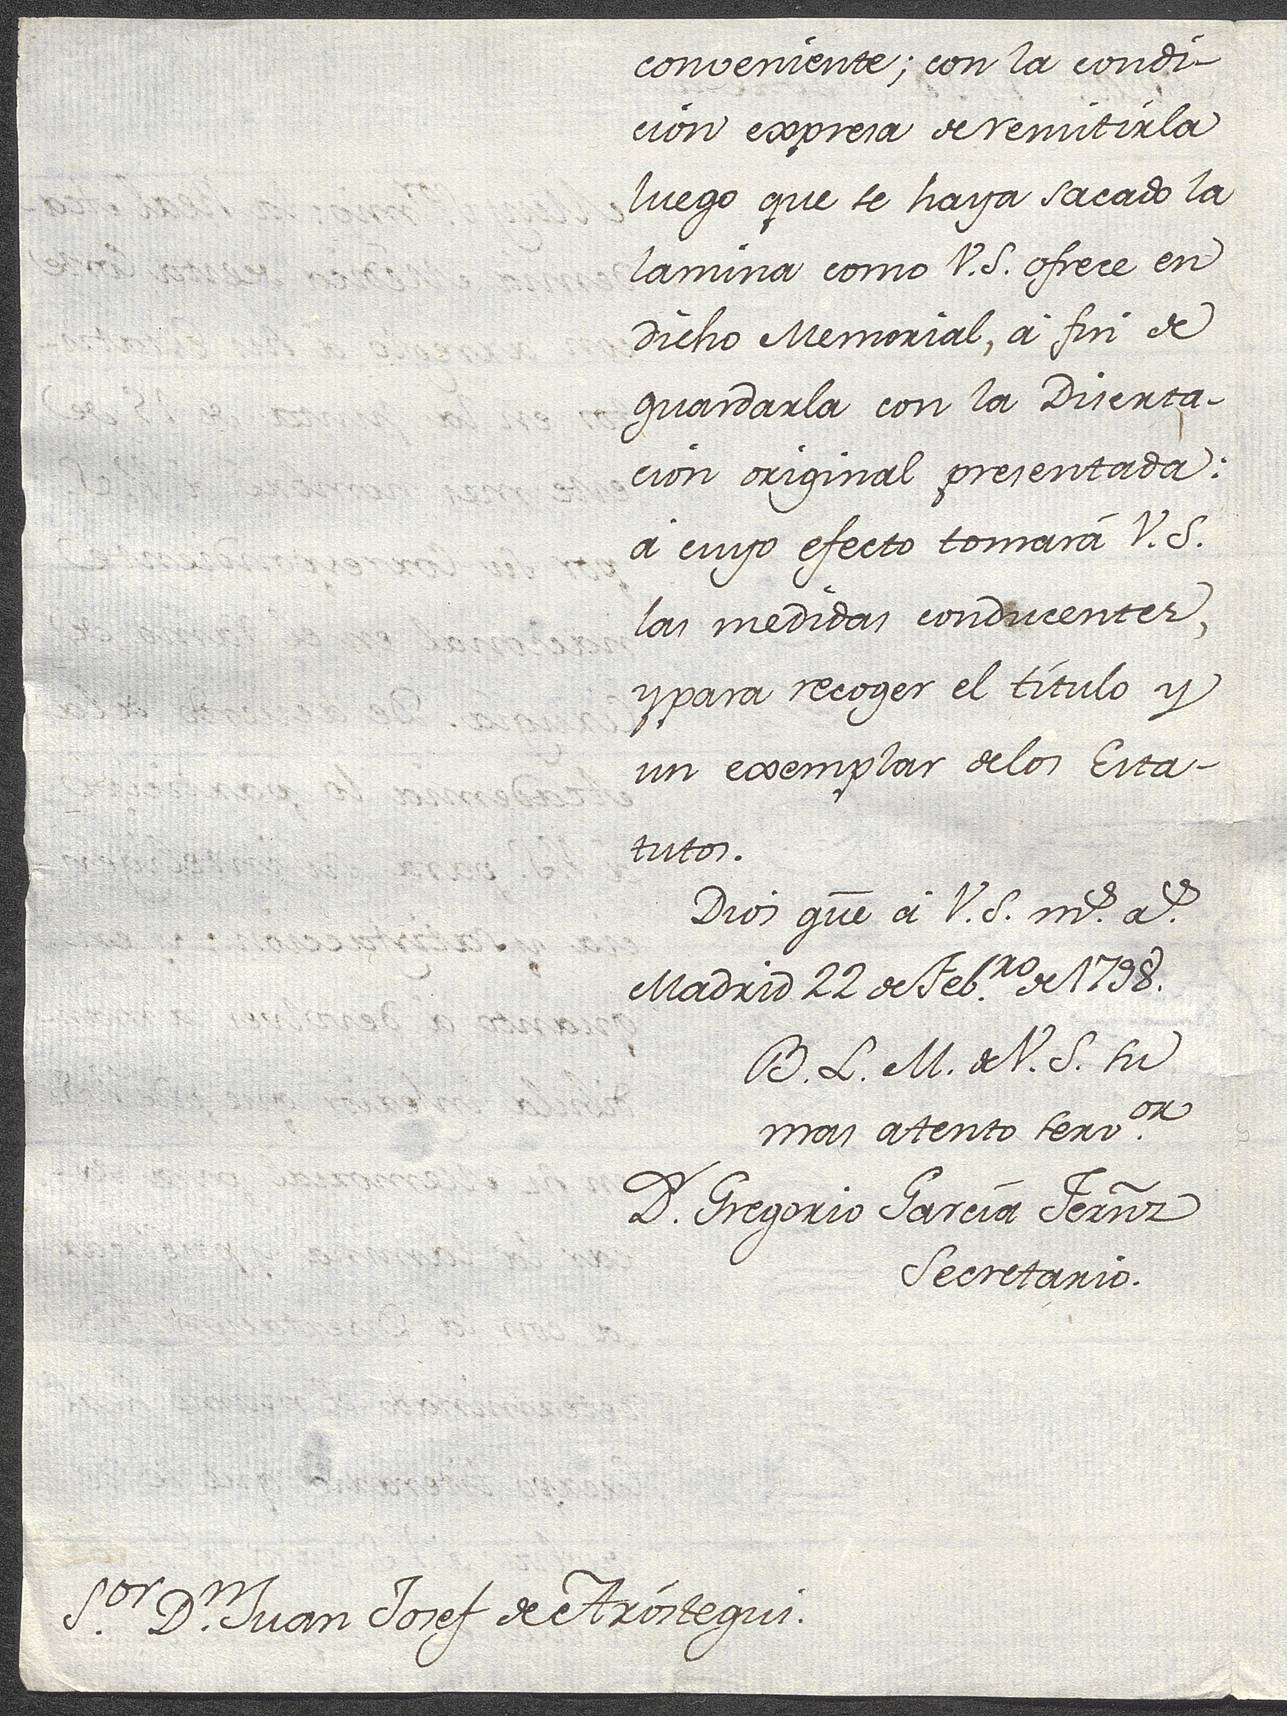 conveniente; con la condi-
cion expresa de remitirla
luego que se haya sacado la
lamina como V.S. ofrece en
dicho Memorial, á fin de
guardarla con la Diserta-
cion original presentada:
á cuyo efecto tomará V.S.
las medidas conducentes,
y para recoger el título y
un exemplar de los Esta-
tutos.
Dios gue á V.S. ms. as.
Madrid 22 de Feb.ro de 1798.
B. L. M. de V. S. su
mas atento serv.or
D. Gregorio García Fernz
Secretario.
S.or D.n Juan Josef de Aróstegui.